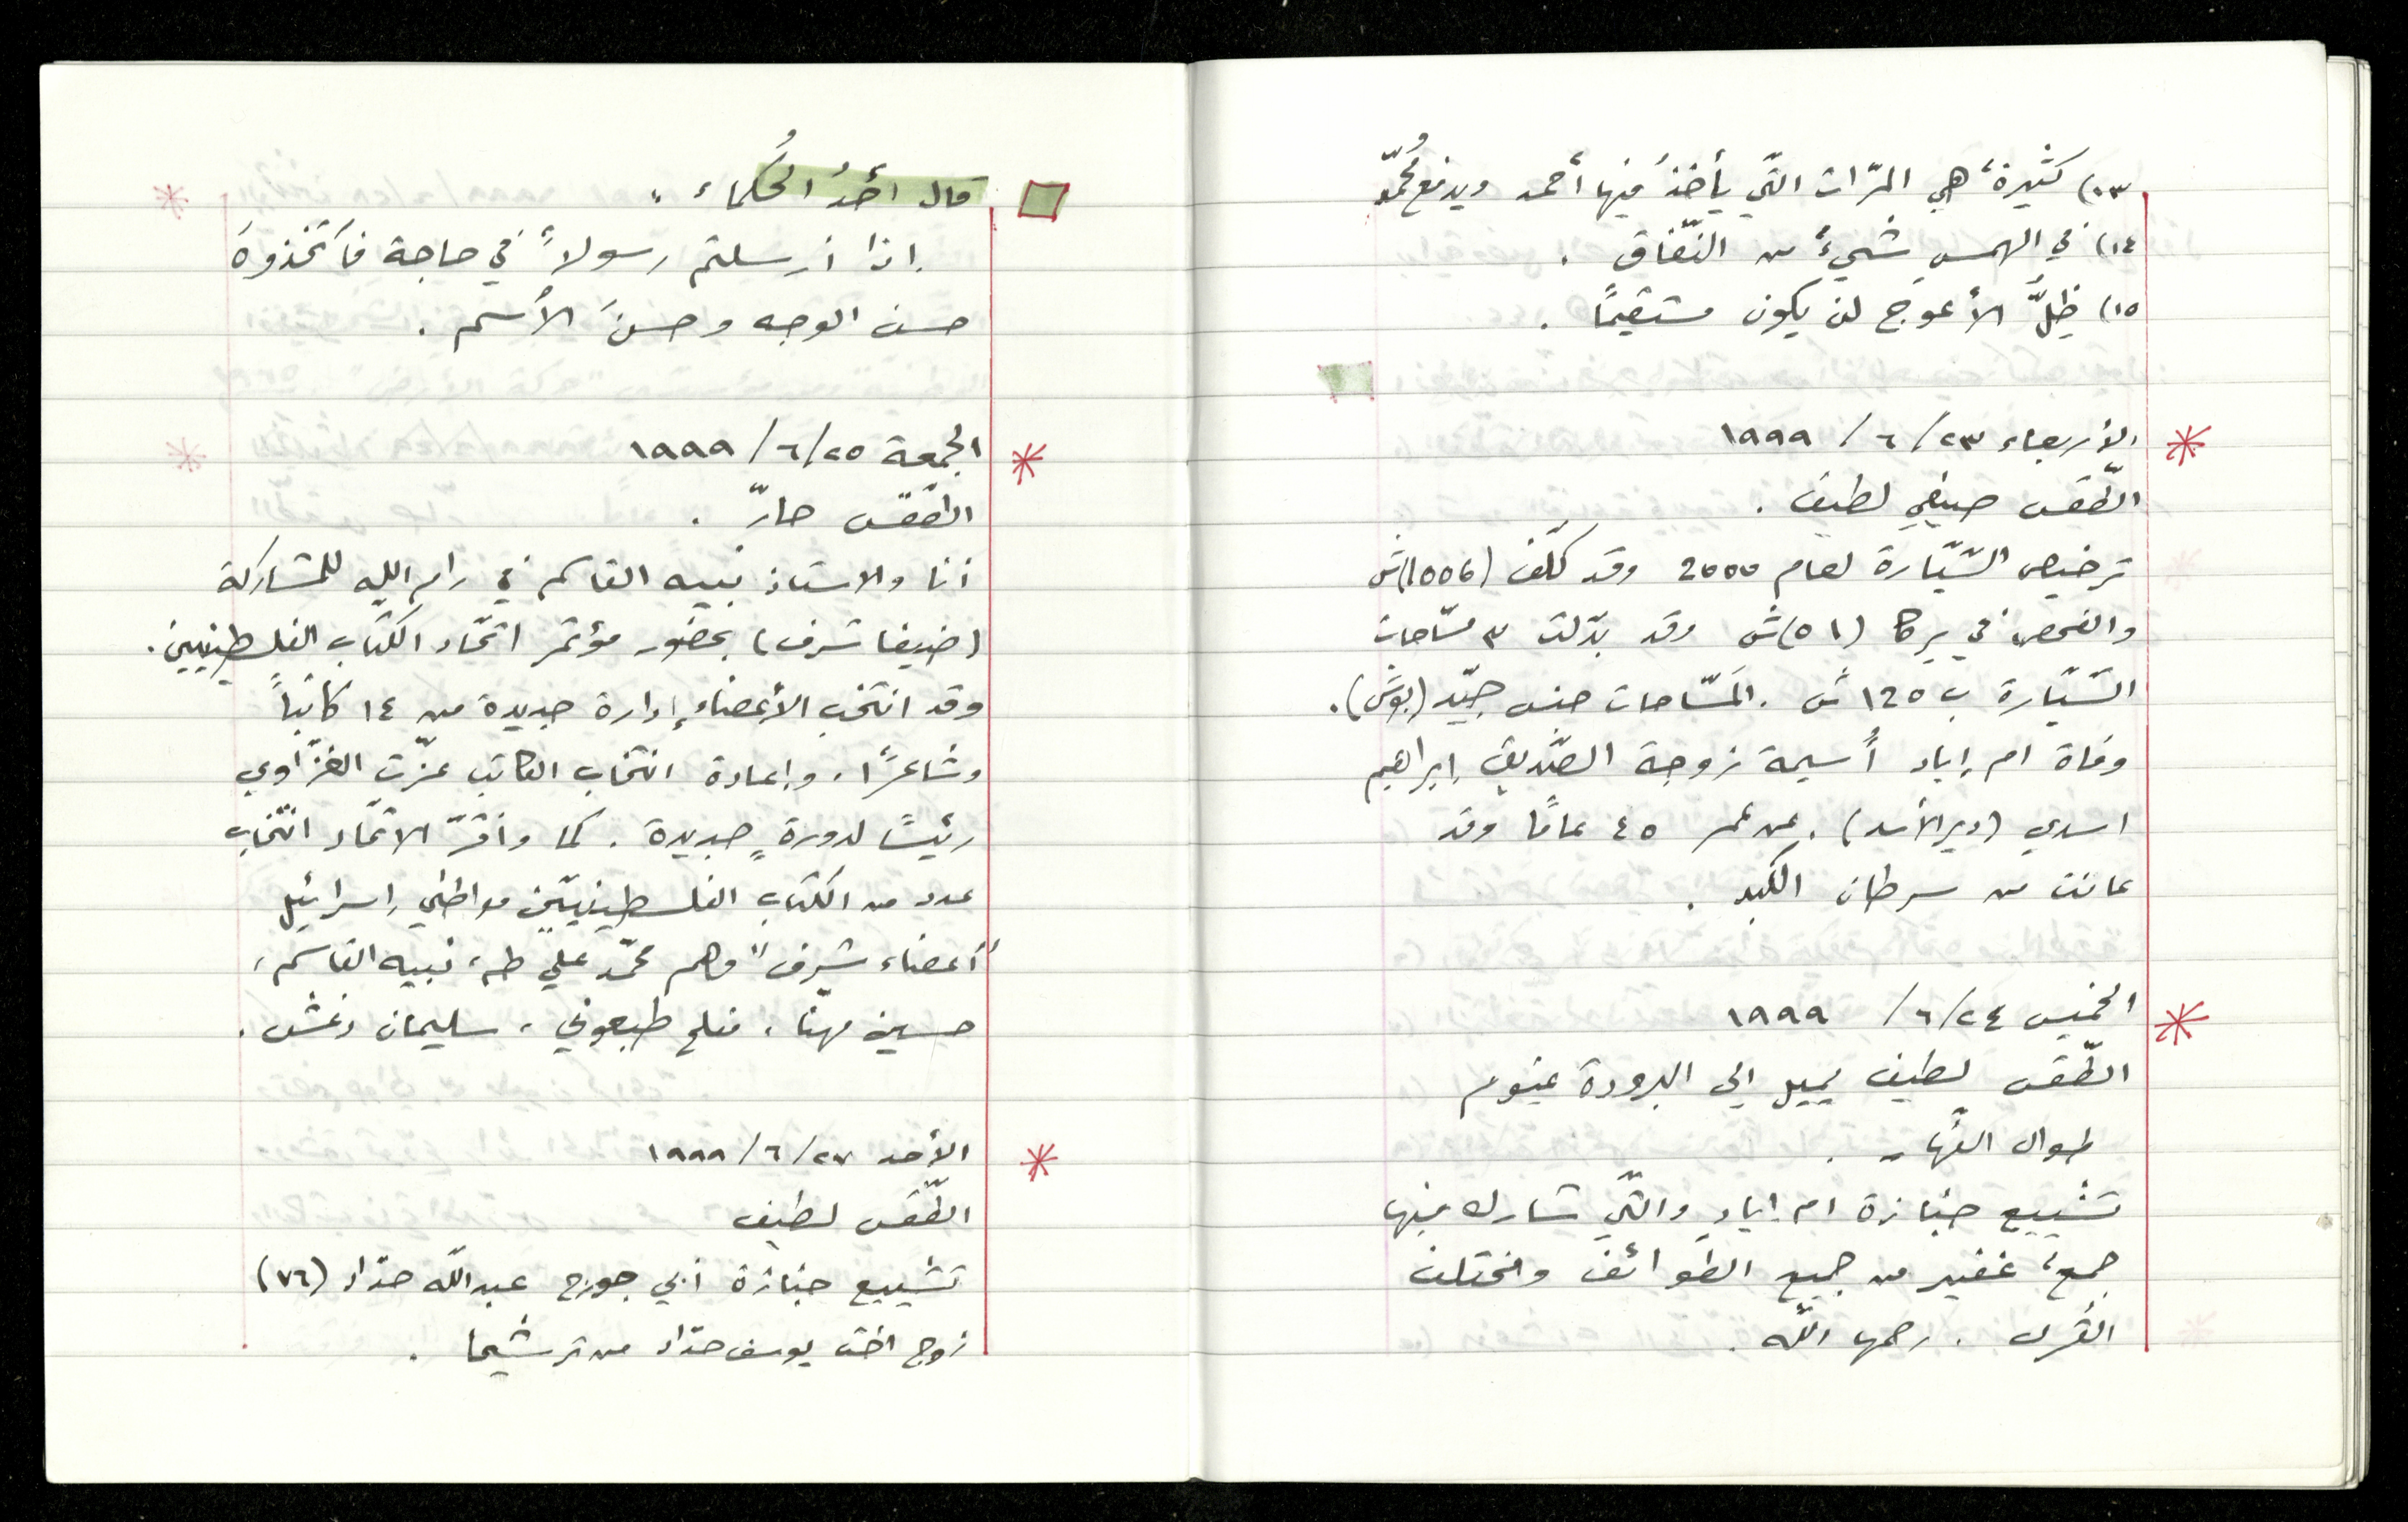 ١٣) كثيرةٌ هي المرّات التّي يأخذُ فيها أحمد ويدفع مُحمّدُ
١٤) في الهمس شيءٌ من النّفاق .
١٥) ظِلُّ الأعوج لن يكون مستقيمًا .
* الأربعاء ٢٣/ ٦/ ١٩٩٩
الطّقس صيفي لطيف .
ترخيص السّيّارة لعام 2000 وقد كلّف (1556)ش
والفحص في يركا (٥١)ش وقد بدّلت ٣ مسّاحات
السّيّارة ب 125 ش . المَسّاحات جنس جيّد (بوش).
وفاة ام إياد أُسيمة زوجة الصّديق ابراهيم
اسدي (دير الأسد) . عن عمر ٤٥ عامًا وقد
عانت من سرطان الكبد .
* الخميس ٢٤/ ٦/ ١٩٩٩
الطّقس لطيف يميل الى البرودة غيوم
طوال النّهار .
تشييع جنازة ام إياد والتّي شارك فيها
جمعٌ غفير من جميع الطوائف ومختلف
القُرى . رحمها اللّه .
قال أحدُ الحُكماءُ :
إذا أرسلتم رسولاً في حاجة فاتخذوهُ
حسن الوجه وحسنَ الأسم .
* الجمعة ٢٥/ ٦/ ١٩٩٩
الطّقس حارّ .
أنا والاستاذ نبيه القاسم في رام الله للمشاركة
(ضيفا شرف) بحضور مؤتمر اتّحاد الكتّاب الفلسطينيين.
وقد انتخب الأعضاء إدارة جديدة من ١٤ كاتباً
وشاعرًا، وإعادة انتخاب الكاتب عزّت الغزّاوي
رئيسًا لدورةٍ جديدة . كما وأقرّ الاتحّاد انتخاب
عدد من الكتّاب الفلسطينييّن مواطني إسرائيل
"أعضاء شرف" وهم محمّد علي طه، نبيه القاسم،
حسين مهنّا، مفلح طبعوني، سليمان دغش .
* الأحد ٢٧/ ٦/ ١٩٩٩
الطّقس لطيف
تشييع جنازة أبي جورج عبداللّه حدّاد (٧٦)
زوج اخت يوسف حدّاد من ترشيحا .